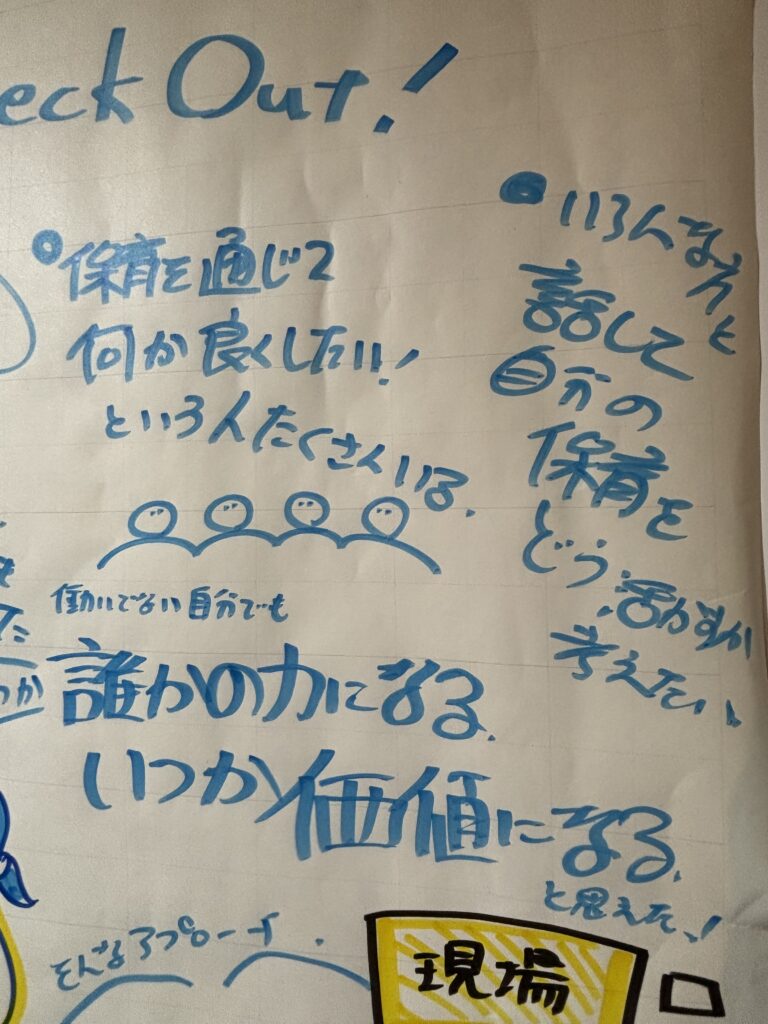 eck Out!
保育を通じて
何か良くしたい!
という人たくさんいる.
働いてない自分でも
誰かの力になる.
いつか価値になる.
と思えた!
いろんな方と
話して
自分の
保育を
どう活かすか
考えたい
そんなアプローチ.
現場